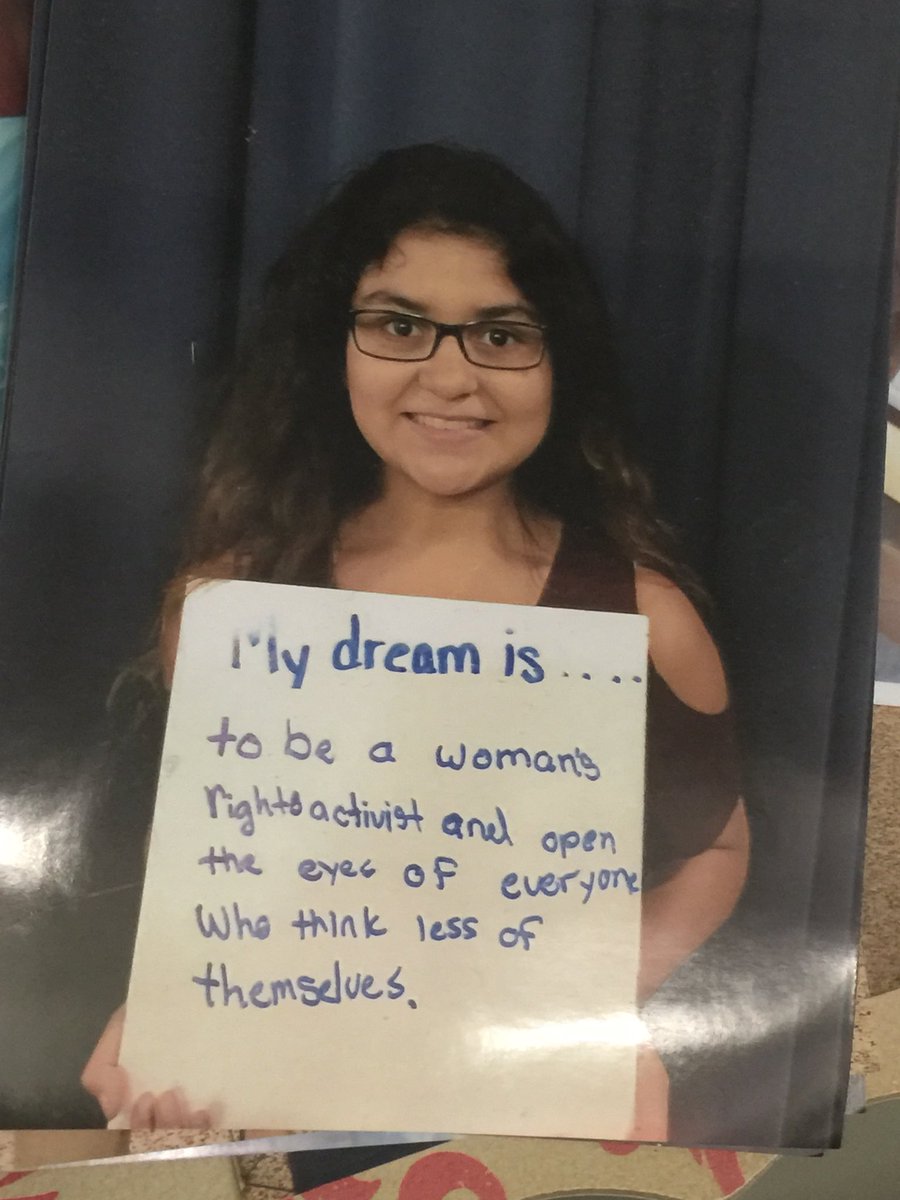 My dream is.....
to be a woman's
rights activist and open
the eyes of everyone
who think less of
themselves.